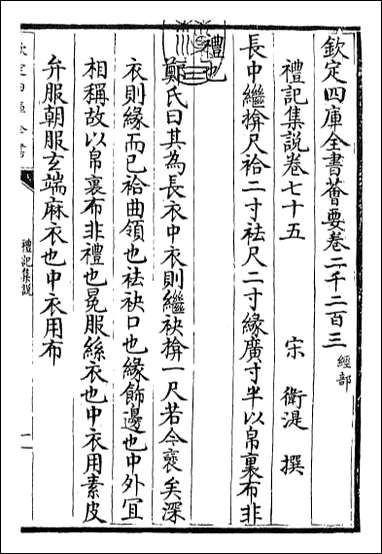 欽定四庫全書薈要卷二千二百三 經部
禮記集說卷七十五
宋 衛湜 撰
長中繼揜尺袷二寸袪尺二寸緣廣寸半以帛裏布非
禮也
鄭氏曰其為長衣中衣則繼袂揜一尺若今褎矣深
衣則緣而已袷曲領也袪袂口也緣飾邊也中外宜
相稱故以帛裏布非禮也冕服絲衣也中衣用素皮
弁服朝服玄端麻衣也中衣用布
欽定四庫全書
禮記集說
一